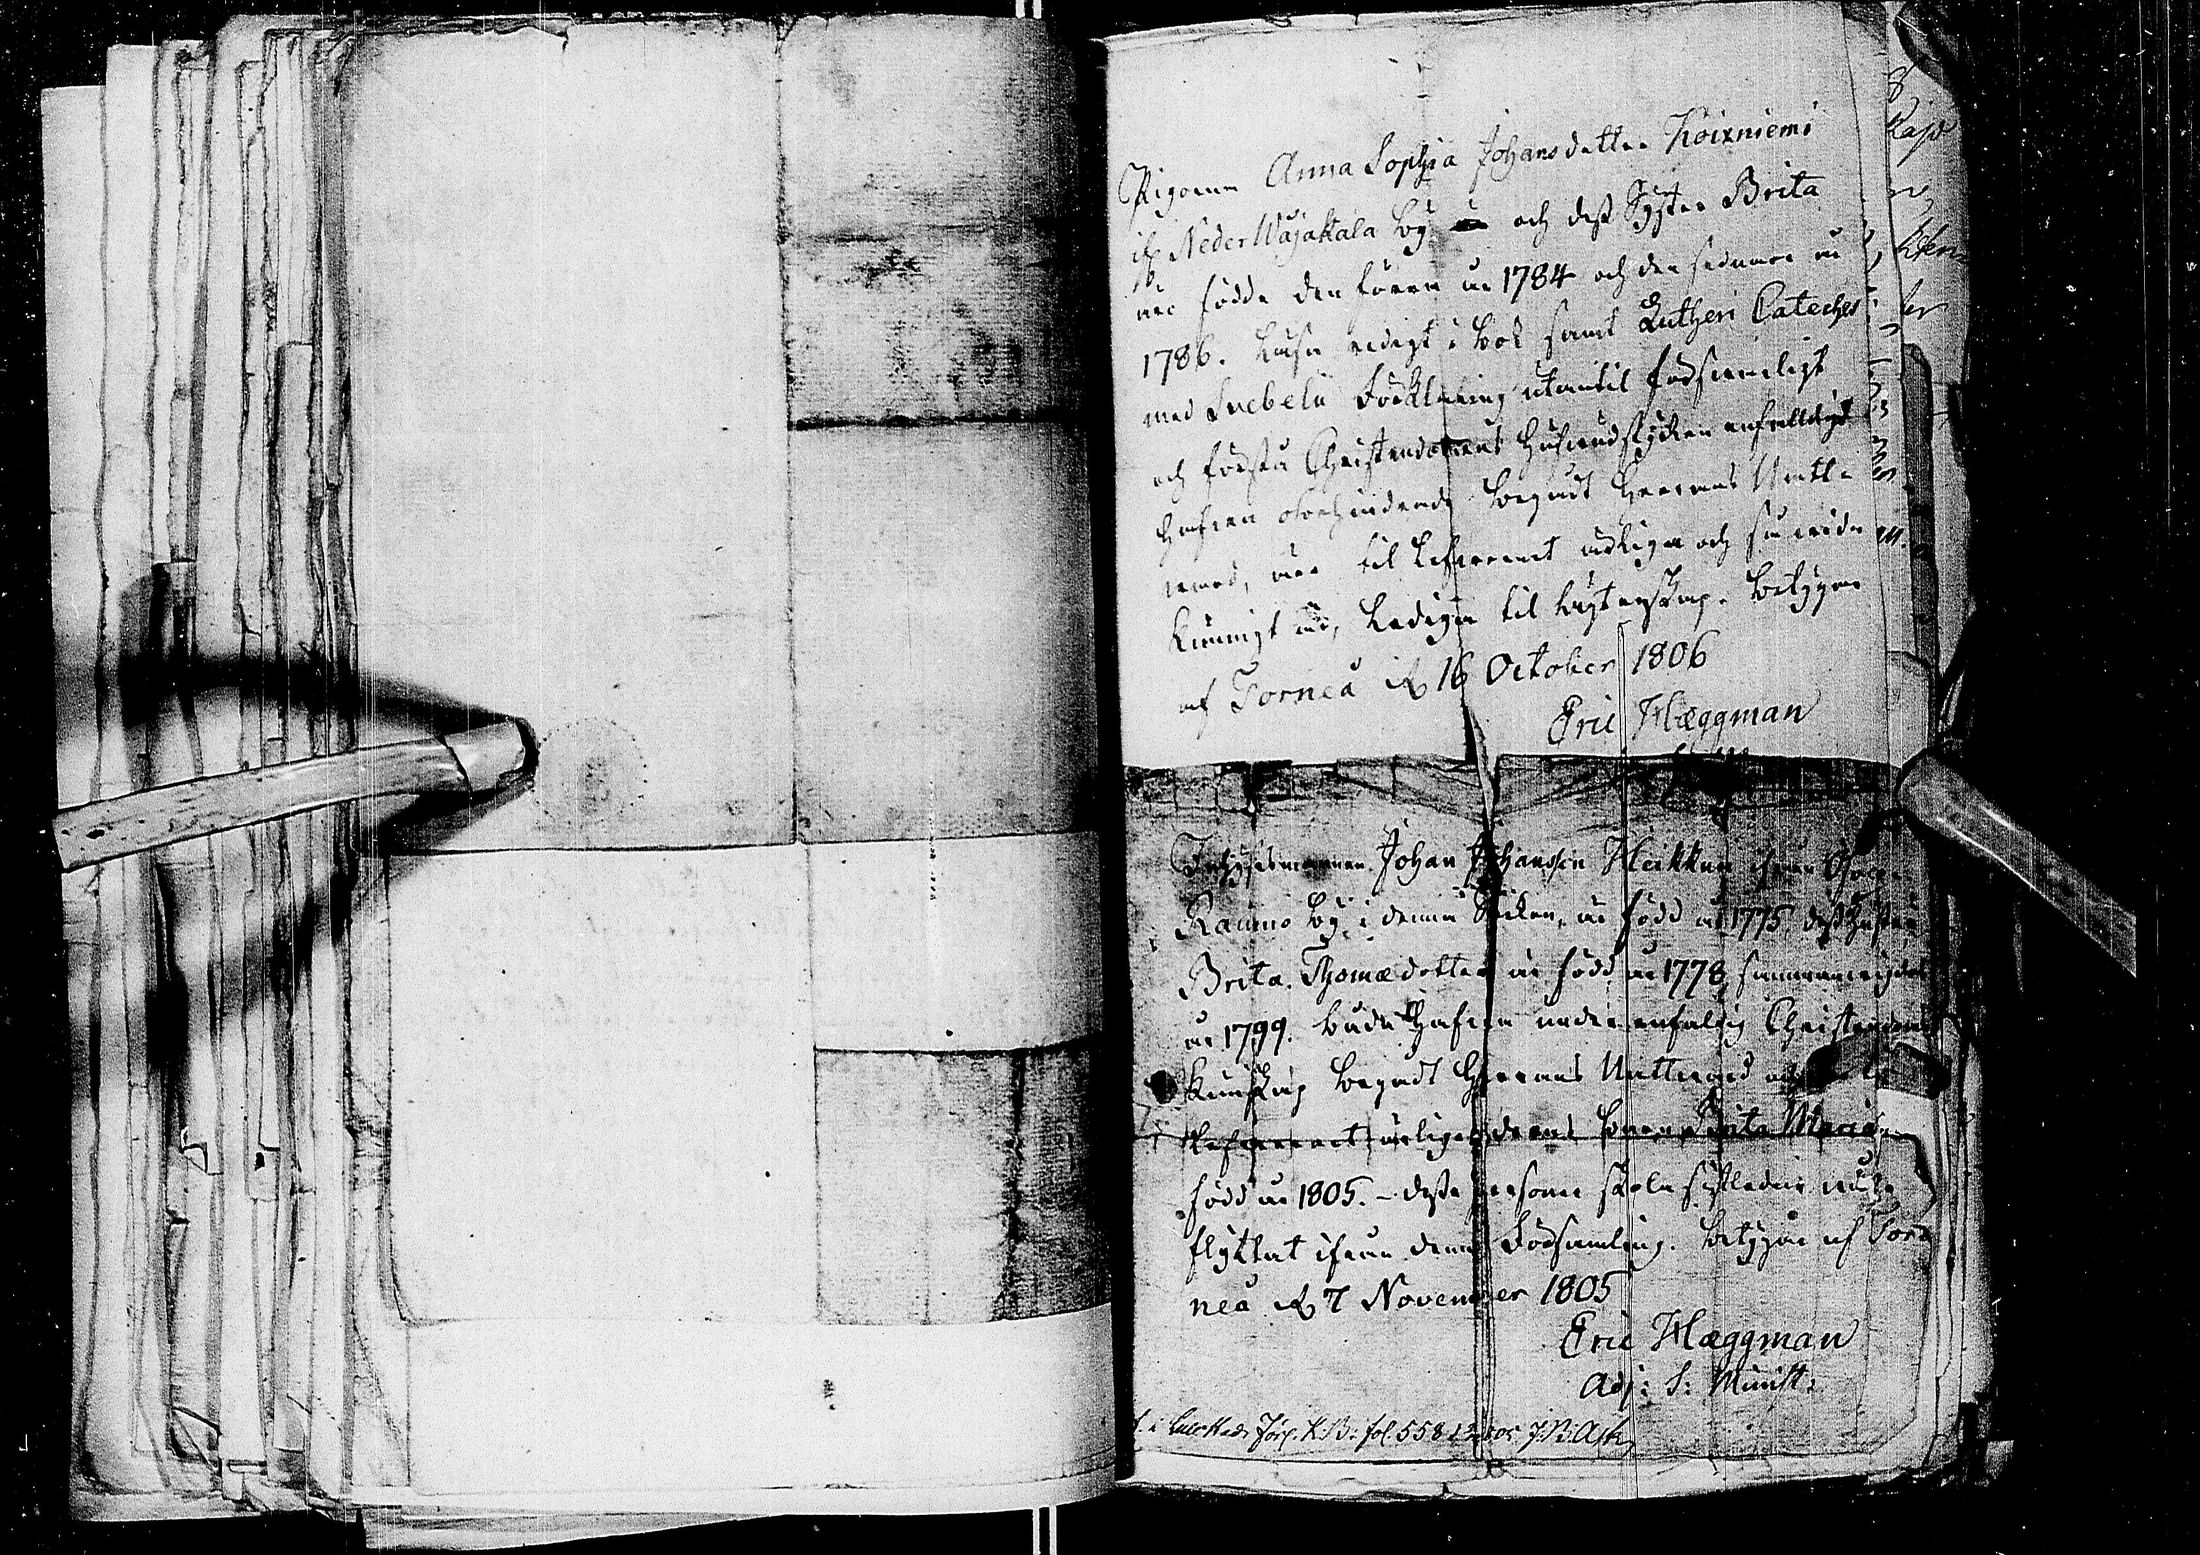 Pigorna Anna Sophia Johansdotter Koixniemi
if. Neder Wojakala by och dess Syster Brita
äro födde den förra år 1784 och den sednare år
1786. Läsa redigt i bok samt Lutheri Cateches
med Svebelii Förklaring utantil försvarligt
och förstå Christendomens hufvudstycken enfaldigt
hafva obehindrade begådt Herrans Natt-
vard, äro til lefvernet ärliga och så vida
kunnigt är, Lediga til ägtenskap. Betygar
af Torneå d. 16 October 1806
Eric Hæggman
Inhysesmannen Johan Johansson Heikku ifrån
Raumo by i denna Sokken, är född år 1775, dess hustru
Brita Thomædotter är född år 1778, sammanvigde
år 1799. Både hafva enfaldig Christendoms
kunskap begådt Herrans Nattvard och
lefvernet ärliga, deras Brita Maria
född år 1805. – desse personer skola sistledne
flyttat ifrån denna Församling. Betygar af Tor-
neå d. 7 November 1805
Eric Hæggman
Adj: S: Minist:
K.B: fol. 558